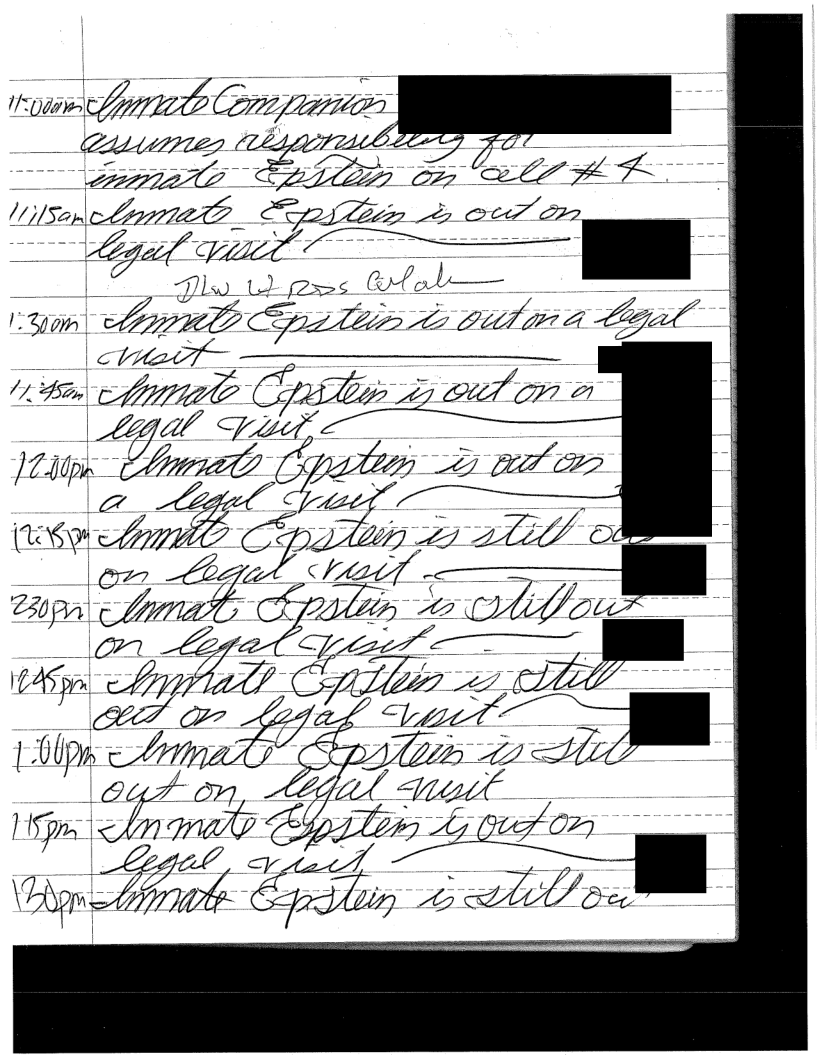 11:00am Inmate Companion
assumes responsibility for
inmate Epstein on cell # 4.
11:15am Inmate Epstein is out on
legal visit
1:30am Inmate Epstein is out on a legal
visit
11:45am Inmate Epstein is out on a
legal visit
12:00pm Inmate Epstein is out on
a legal visit
12:15pm Inmate Epstein is still ou
on legal visit
230pm Inmat Epstein is still out
on legal visit
1245pm Inmate Epstein is still
out on legal visit
1:00pm Inmate Epstein is still
out on legal visit
115pm Inmate Epstein is out on
legal visit
130pm Inmate Epstein is still ou